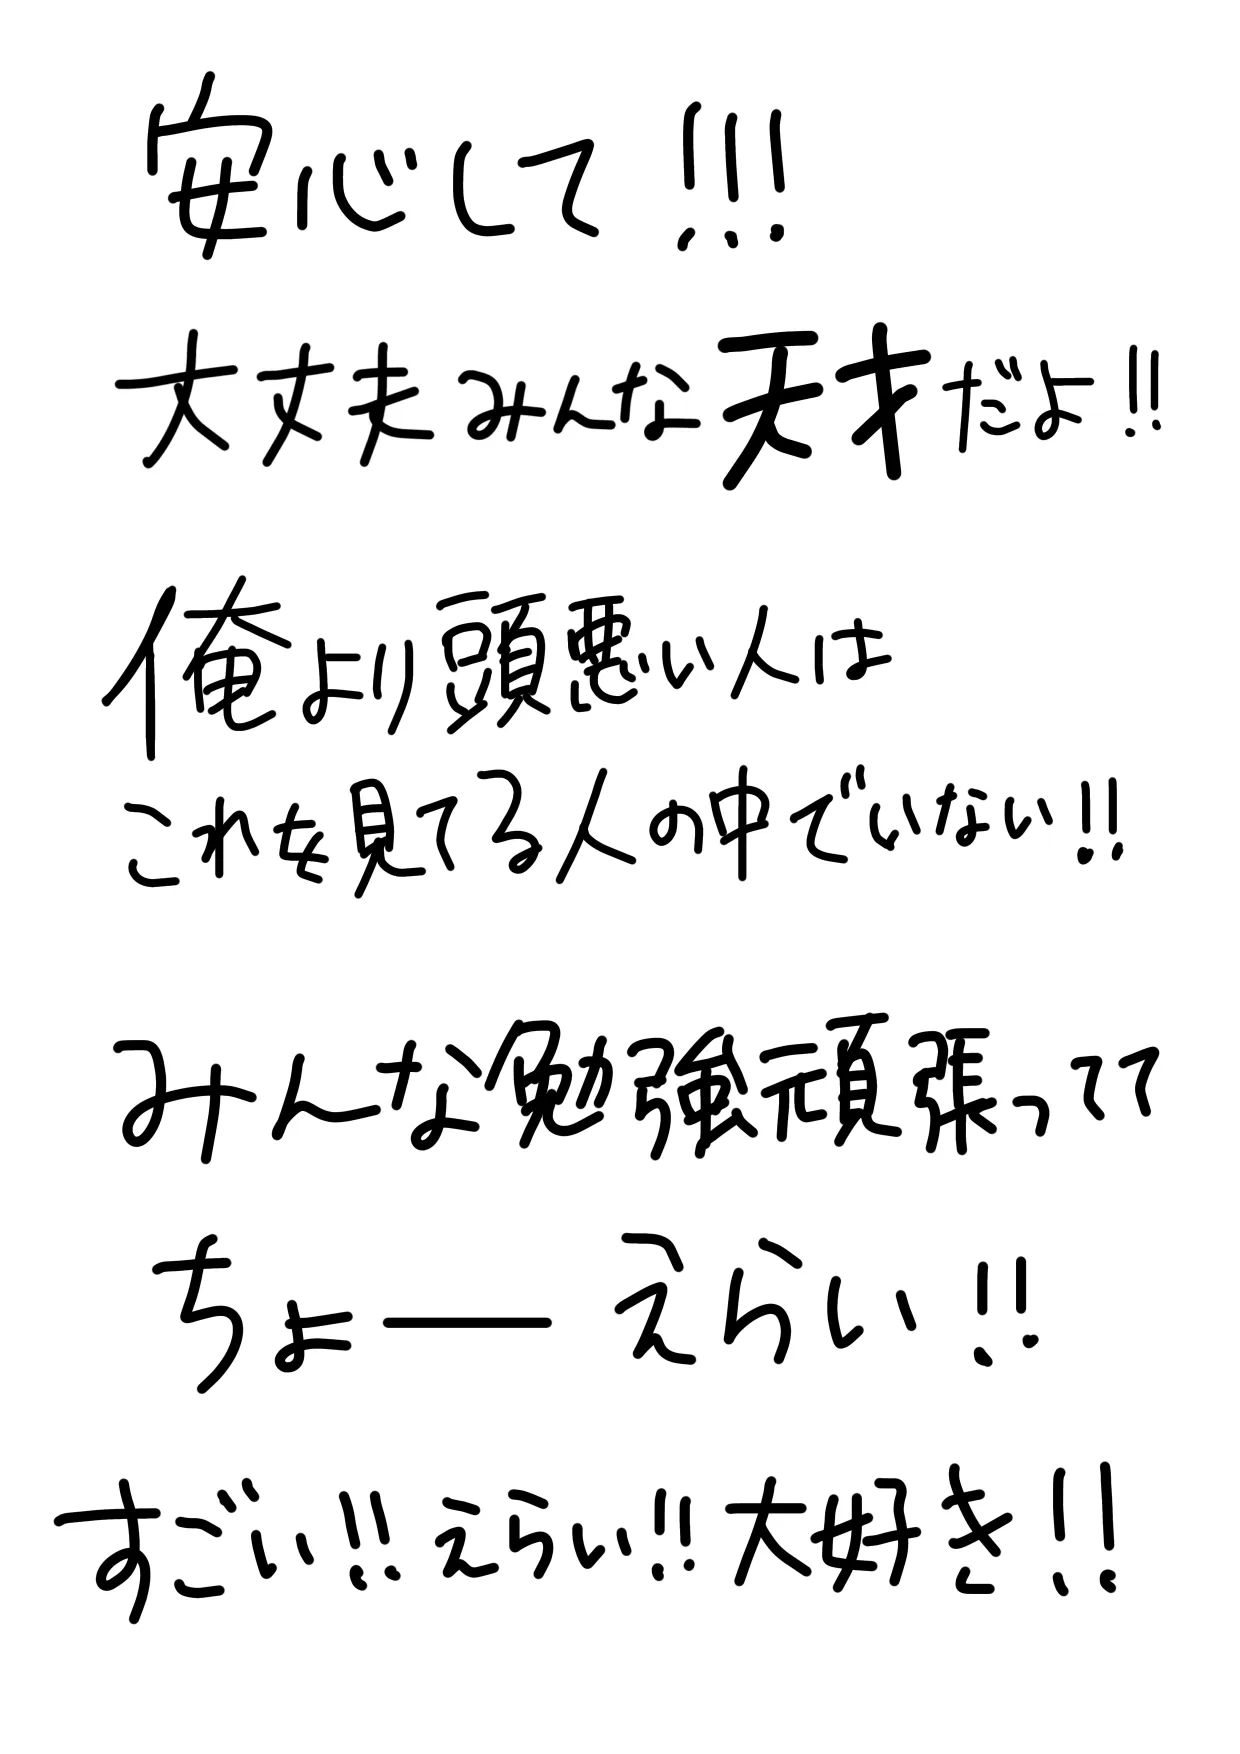 安心して!!!
大丈夫みんな天才だよ!!
俺より頭悪い人は
これを見てる人の中でいない!!
みんな勉強頑張ってて
ちょーえらい!!
すごい!!えらい!!大好き!!